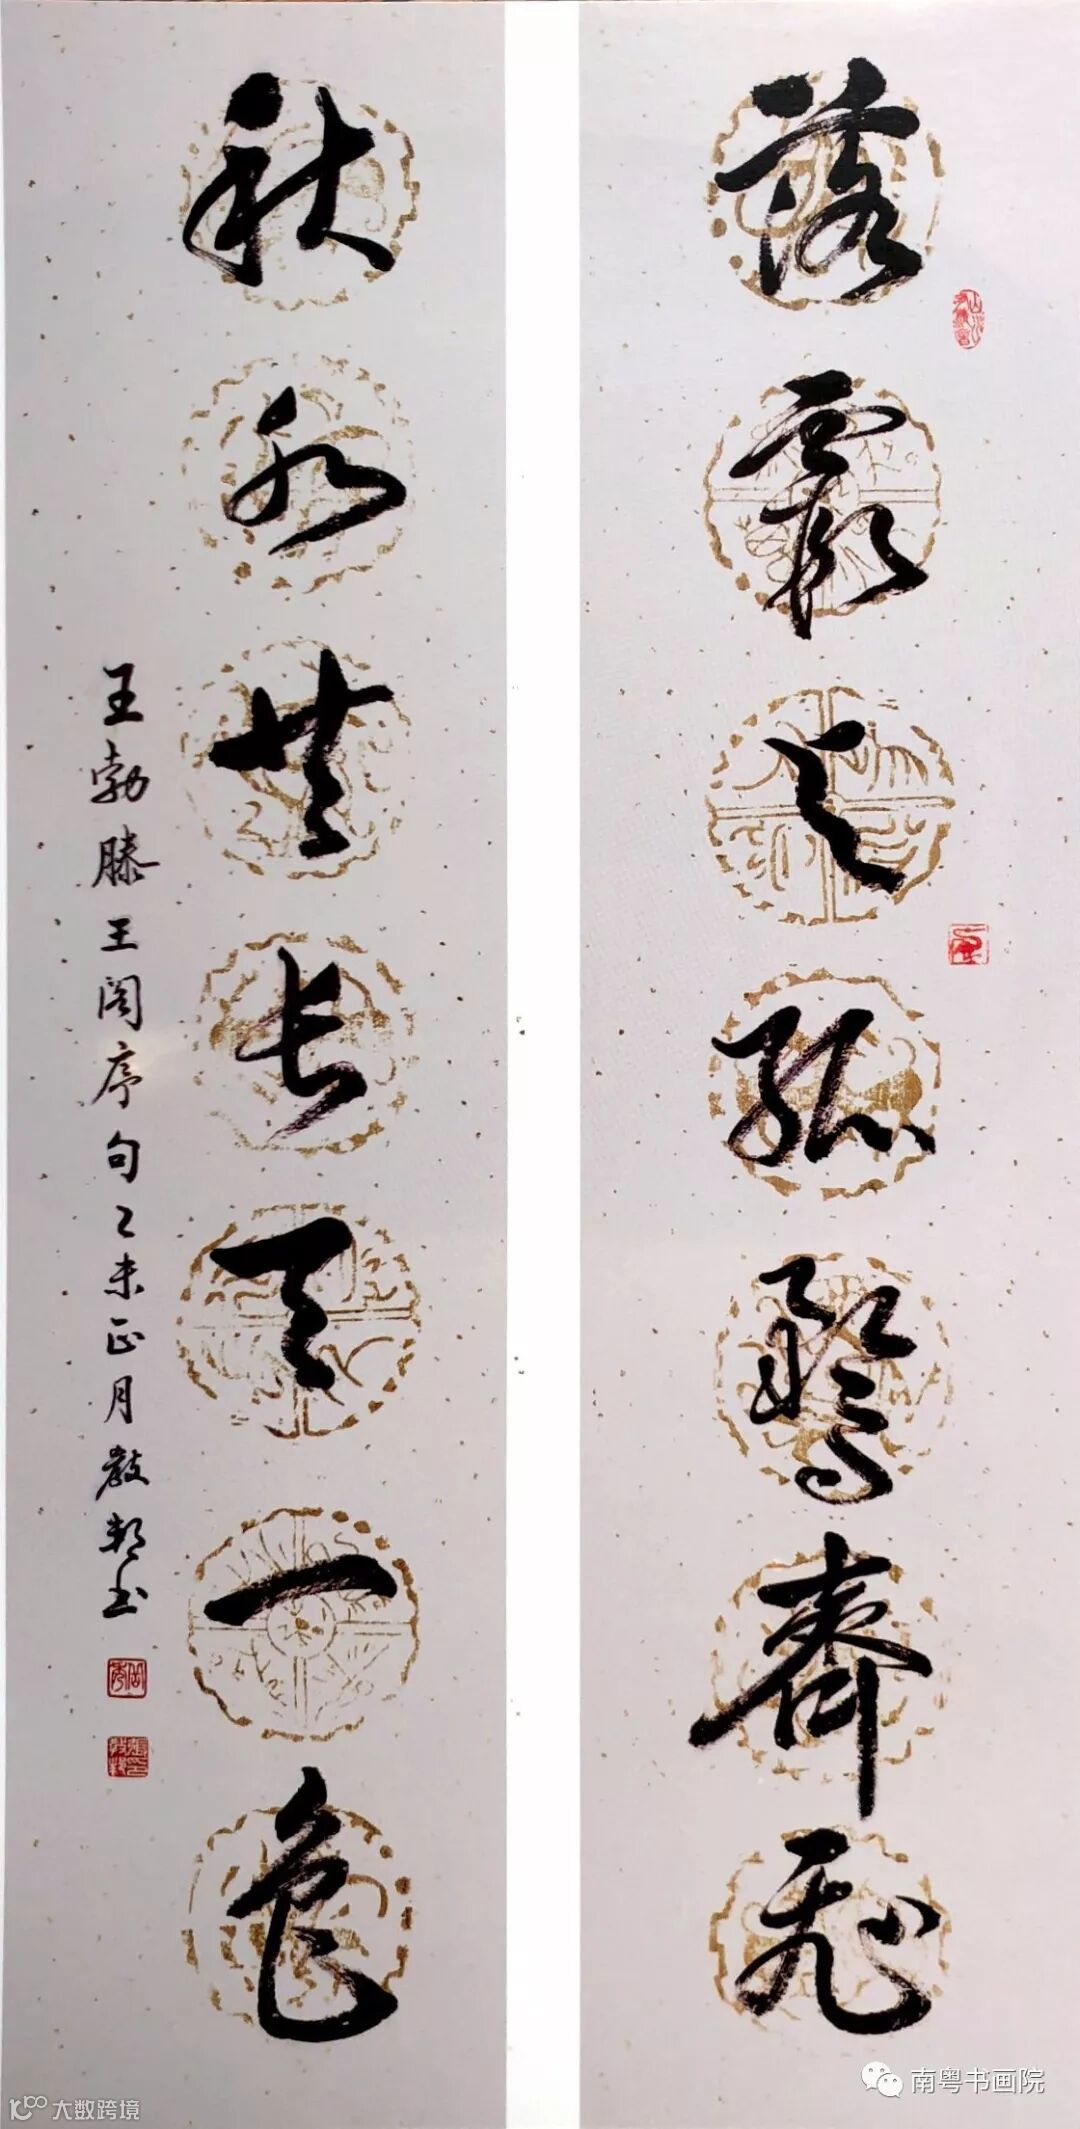 落霞与孤鹜齊飛
秋水共长天一色
王勃滕王阁序句乙未正月教邦书
南粤书画院
大数跨境